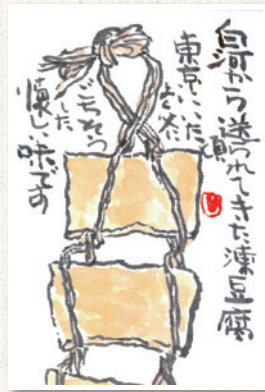 白河から送られてきた凍豆腐
東京にいた頃
ごちそう
した
懐しい味です